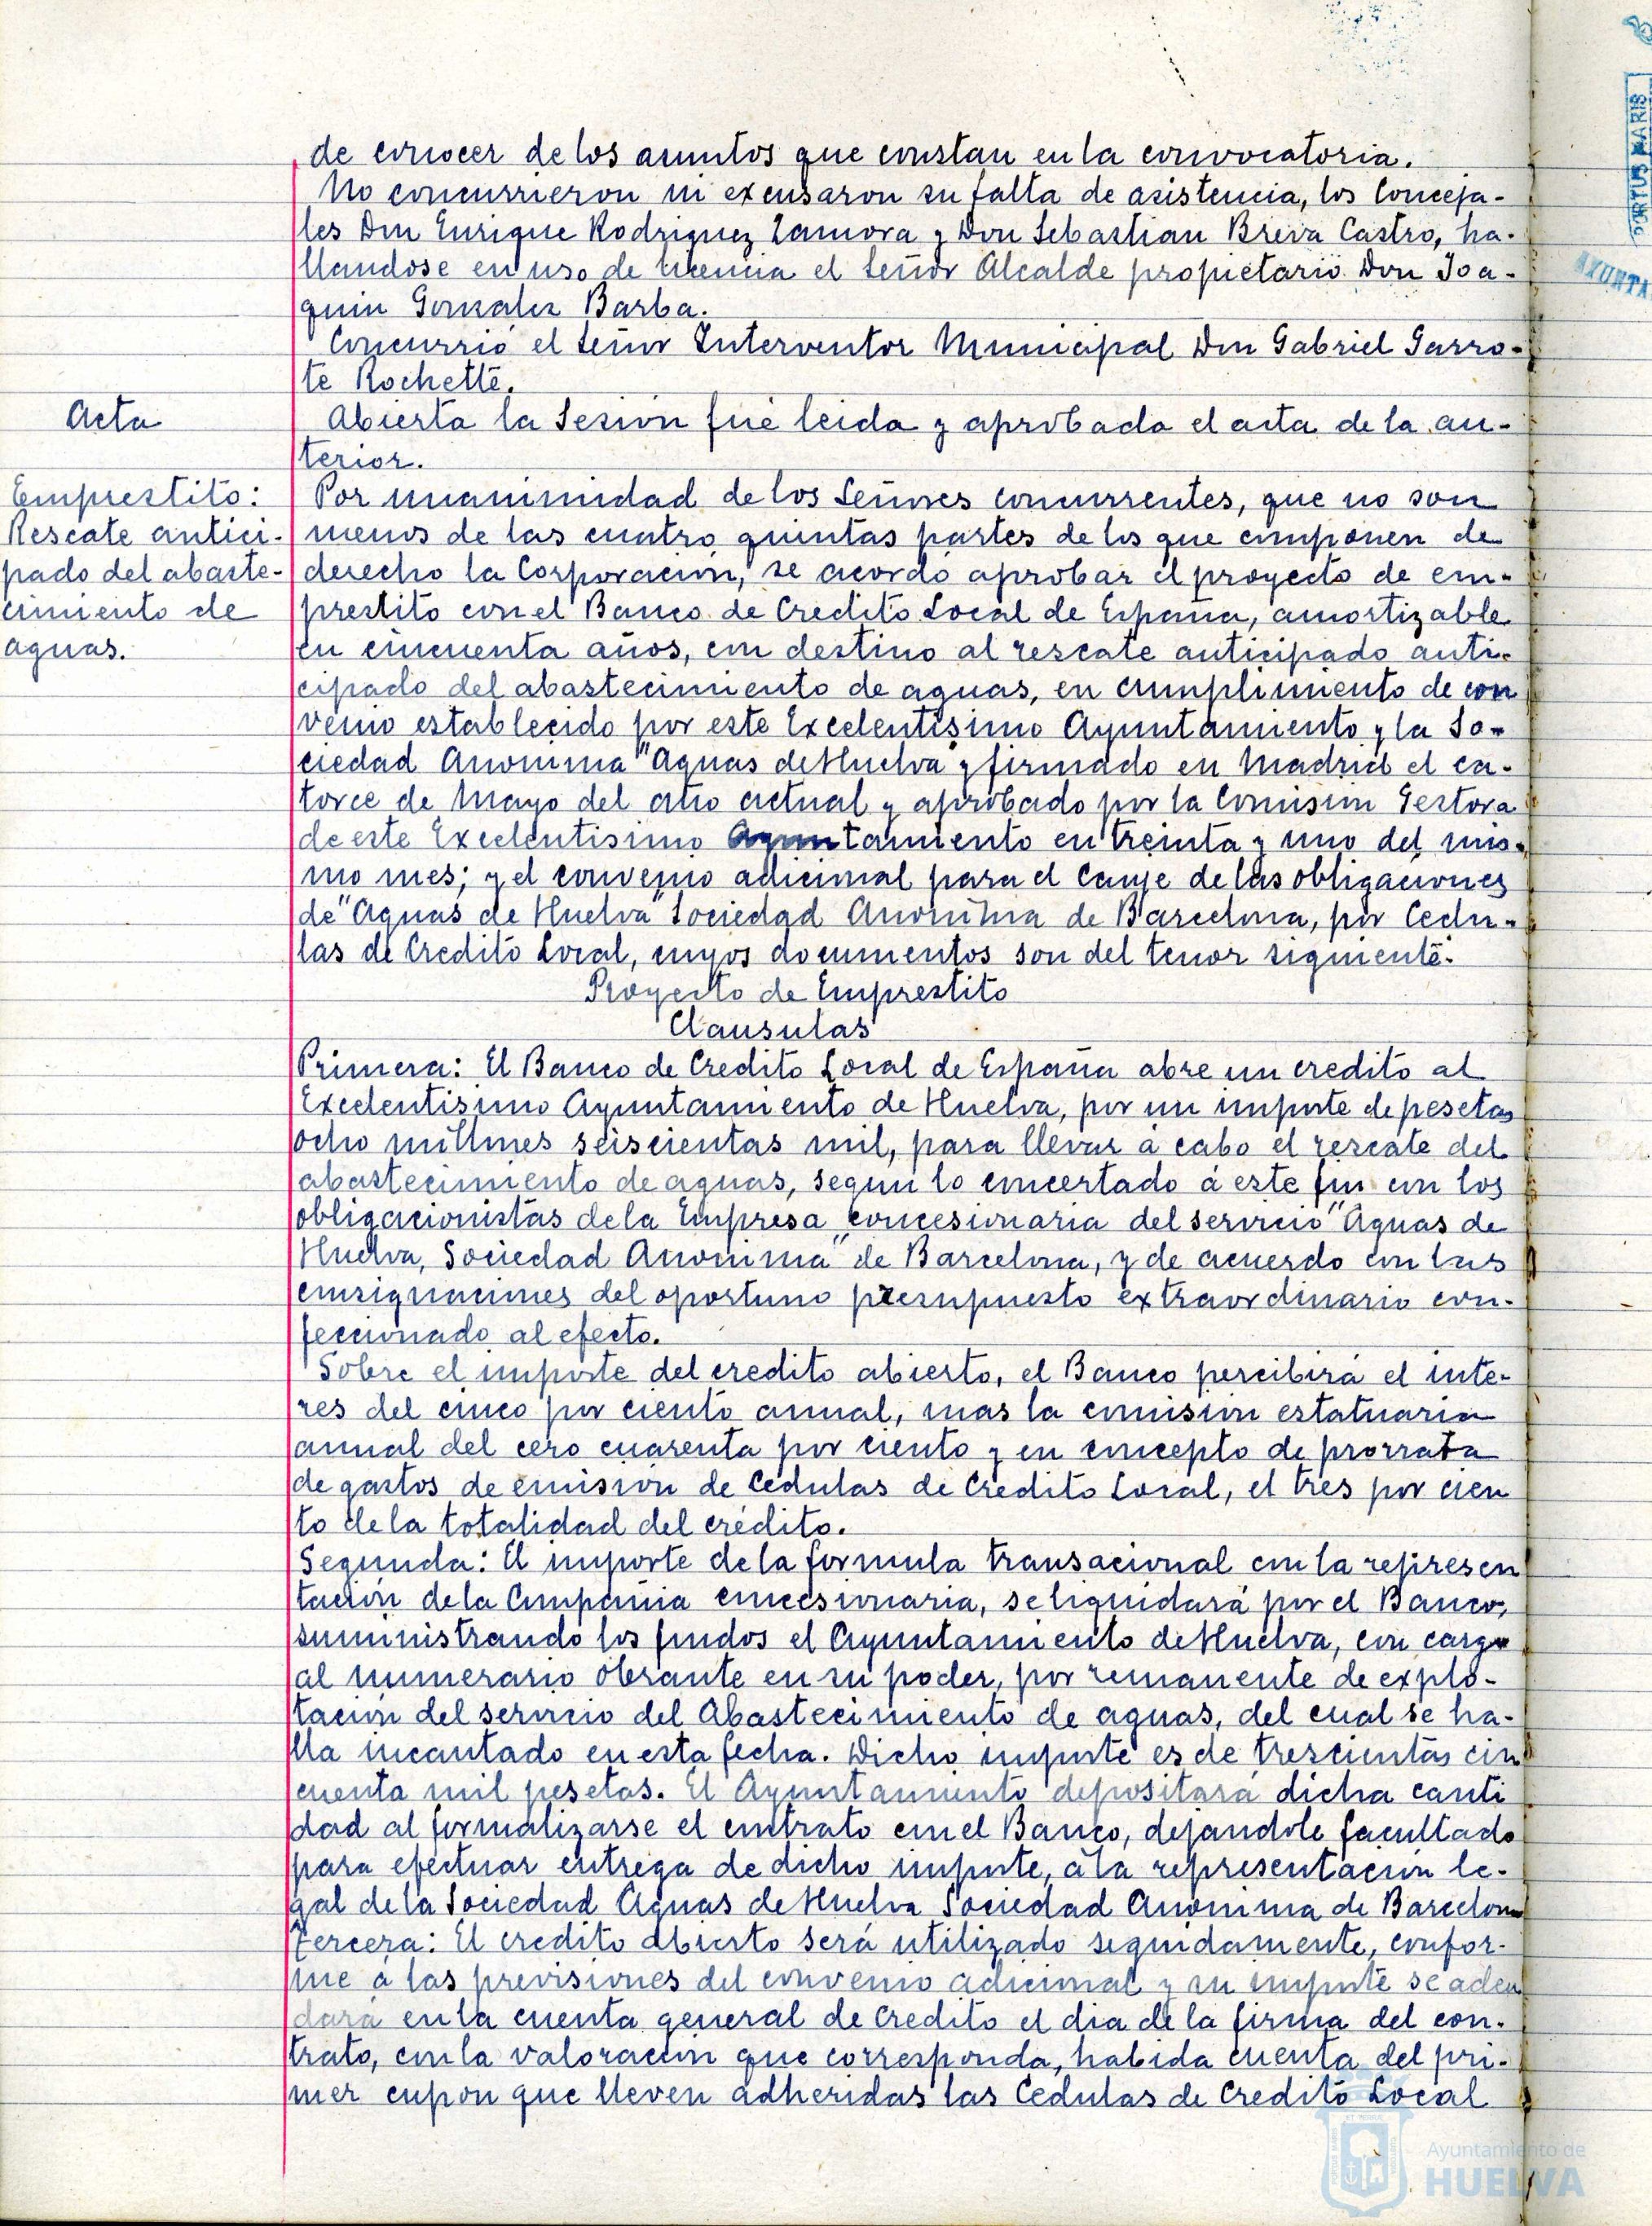 de conocer de los asuntos que constan en la convocatoria.
No concurrieron ni excusaron su falta de asistencia, los Conceja-
les Don Enrique Rodriguez Zamora y Don Sebastian Breva Castro, ha-
llandose en uso de licencia el Señor Alcalde propietario Don Joa-
quin Gonzalez Barba.
Concurrió el Señor Interventor Municipal Don Gabriel Garro-
te Rochette.
Acta
Abierta la Sesión fué leida y aprobada el acta de la an-
terior.
Emprestito:
Rescate antici-
pado del abaste-
cimiento de
aguas.
Por unanimidad de los Señores concurrentes, que no son
menos de las cuatro quintas partes de los que componen de
derecho la Corporación, se acordó aprobar el proyecto de em-
prestito con el Banco de Credito Local de España, amortizable
en cincuenta años, con destino al rescate anticipado anti-
cipado del abastecimiento de aguas, en cumplimiento de con
venio establecido por este Excelentísimo Ayuntamiento y la So-
ciedad Anonima "Aguas de Huelva" y firmado en Madrid el ca-
torce de Mayo del año actual y aprobado por la Comisión Gestora
de este Excelentisimo Ayuntamiento en treinta y uno del mis-
mo mes; y el convenio adicional para el canje de las obligaciones
de "Aguas de Huelva" Sociedad Anonima de Barcelona, por Cedu-
las de Credito Local, cuyos documentos son del tenor siguiente:
Proyecto de Emprestito
Clausulas
Primera: El Banco de Credito Local de España abre un credito al
Excelentisimo Ayuntamiento de Huelva, por un importe de pesetas
ocho millones seiscientas mil, para llevar á cabo el rescate del
abastecimiento de aguas, segun lo concertado á este fin con los
obligacionistas de la Empresa concesionaria del servicio "Aguas de
Huelva, Sociedad Anonima" de Barcelona, y de acuerdo con las
consignaciones del oportuno presupuesto extraordinario con-
feccionado al efecto.
Sobre el importe del credito abierto, el Banco percibirá el inte-
res del cinco por ciento anual, mas la comision estatuaria
anual del cero cuarenta por ciento y en concepto de prorrata
de gastos de emisión de Cedulas de Credito Local, el tres por cien
to de la totalidad del crédito.
Segunda: El importe de la formula transacional con la represen
tación de la Compañia concesionaria, se liquidará por el Banco,
suministrando los fondos el Ayuntamiento de Huelva, con cargo
al numerario obrante en su poder, por remanente de explo-
tación del servicio del Abastecimiento de aguas, del cual se ha-
lla incautado en esta fecha. Dicho importe es de trescientas cin
cuenta mil pesetas. El Ayuntamiento depositará dicha canti
dad al formalizarse el contrato con el Banco, dejandole facultado
para efectuar entrega de dicho importe, á la representación le-
gal de la Sociedad Aguas de Huelva Sociedad Anónima de Barcelona
Tercera: El credito abierto será utilizado seguidamente, confor-
me á las previsiones del convenio adicional y su importe se adeu
dará en la cuenta general de Credito el dia de la firma del con-
trato, con la valoración que corresponda, habida cuenta del pri-
mer cupon que lleven adheridas las Cedulas de Credito Local
PORTUS MARIS
AYUNTA
Ayuntamiento de
HUELVA